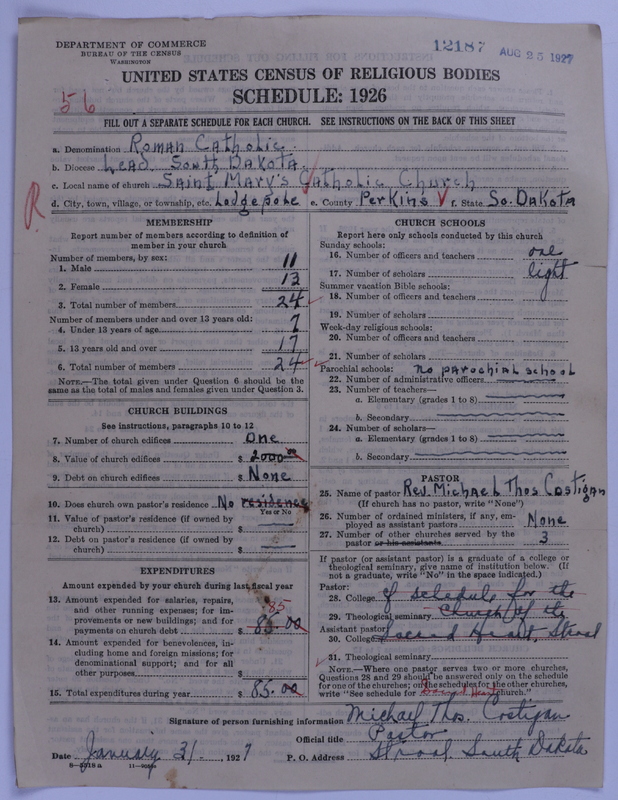 DEPARTMENT OF COMMERCE
BUREAU OF THE CENSUS
WASHINGTON
12187
AUG 25 1927
UNITED STATES CENSUS OF RELIGIOUS BODIES
SCHEDULE: 1926
56
FILL OUT A SEPARATE SCHEDULE FOR EACH CHURCH. SEE INSTRUCTIONS ON THE BACK OF THIS SHEET
a. Denomination Roman Catholic.
b. Diocese Lead South Dakota.
c. Local name of church Saint Mary's Catholic Church
R
d. City, town, village, or township, etc. Lodgepole e. County Perkins f. State So. Dakota
MEMBERSHIP
Report number of members according to definition of member in your church
Number of members, by sex:
1. Male 11
2. Female 13
3. Total number of members 24
Number of members under and over 13 years old:
4. Under 13 years of age 7
5. 13 years old and over 17
6. Total number of members 24
NOTE.—The total given under Question 6 should be the same as the total of males and females given under Question 3.
CHURCH BUILDINGS
See instructions, paragraphs 10 to 12
7. Number of church edifices One
8. Value of church edifices $ 2000.00
9. Debt on church edifices $ None
10. Does church own pastor's residence No residence
Yes or No
11. Value of pastor's residence (if owned by church) $
12. Debt on pastor's residence (if owned by church) $
EXPENDITURES
Amount expended by your church during last fiscal year
13. Amount expended for salaries, repairs, and other running expenses; for improvements or new buildings; and for payments on church debt $ 85.00
85
14. Amount expended for benevolences, including home and foreign missions; for denominational support; and for all other purposes $
15. Total expenditures during year $ 85.00
CHURCH SCHOOLS
Report here only schools conducted by this church
Sunday schools:
16. Number of officers and teachers one
17. Number of scholars light
Summer vacation Bible schools:
18. Number of officers and teachers
19. Number of scholars
Week-day religious schools:
20. Number of officers and teachers
21. Number of scholars
Parochial schools: No parochial school
22. Number of administrative officers
23. Number of teachers—
a. Elementary (grades 1 to 8)
b. Secondary
24. Number of scholars—
a. Elementary (grades 1 to 8)
b. Secondary
PASTOR
25. Name of pastor Rev. Michael Thos Costigan
(If church has no pastor, write "None")
26. Number of ordained ministers, if any, employed as assistant pastors None
27. Number of other churches served by the pastor or his assistants 3
If pastor (or assistant pastor) is a graduate of a college or theological seminary, give name of institution below. (If not a graduate, write "No" in the space indicated.)
Pastor:
28. College of schedule for the
29. Theological seminary Church of the
Assistant pastor:
30. College Sacred Heart, Strool
31. Theological seminary
NOTE.—Where one pastor serves two or more churches, Questions 28 and 29 should be answered only on the schedule for one of the churches; on the schedules for the other churches, write "See schedule for Sacred Heart church."
Signature of person furnishing information Michael Thos. Costigan
Official title Pastor
Date January 31. 1927
P. O. Address Strool South Dakota